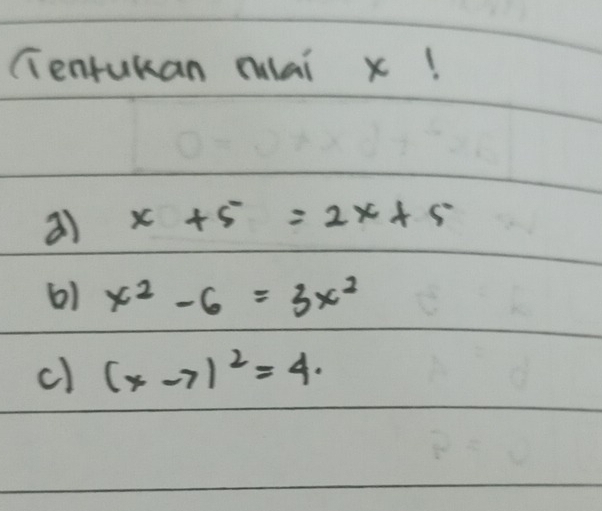 Tentukan nilai x !
a) x + 5 = 2x + 5
b) x² - 6 = 3x²
c) (x - 7)² = 4.